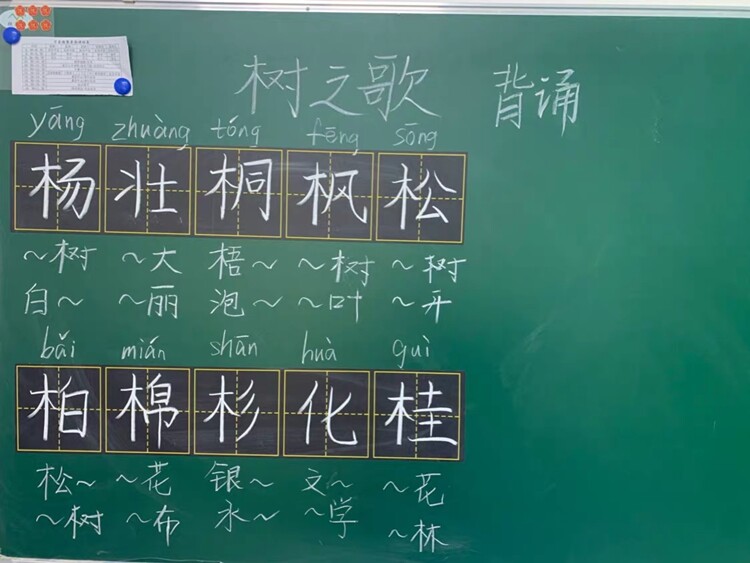 树之歌 背诵
yāng zhuàng tóng fēng sōng
杨 壮 桐 枫 松
~树 ~大 梧~ ~树 ~树
白~ ~丽 泡~ ~叶 ~开
bǎi mián shān huà guì
柏 棉 杉 化 桂
松~ ~花 银~ 文~ ~花
~树 ~布 水~ ~学 ~林